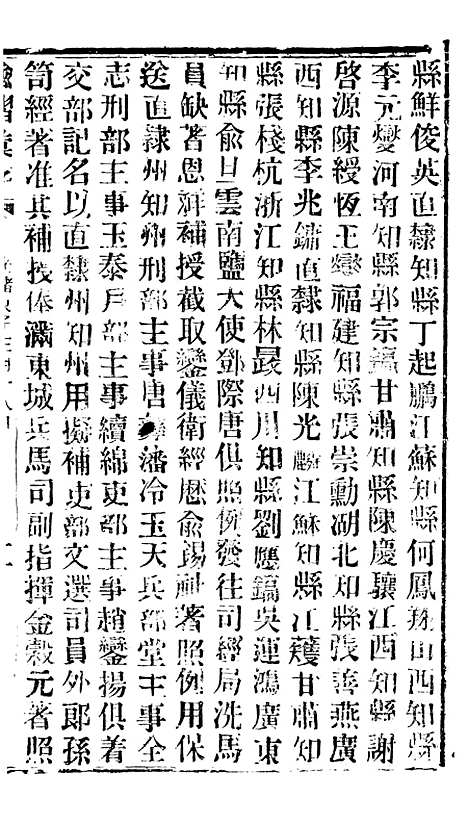 縣鮮俊英直隸知縣丁起鵬江蘇知縣何鳳翔山西知縣
李元燮河南知縣郭宗甘肅知縣陳慶驤江西知縣謝
啓源陳綬恆王鑾福建知縣張崇勳湖北知縣張善燕廣
西知縣李兆鏞直隸知縣陳光江蘇知縣江甘肅知
縣張棧杭浙江知縣林晸四川知縣劉鷹鎬吳運鴻廣東
知縣俞旦雲南鹽大使鄧際唐俱照例發往司經局洗馬
員缺著恩祥補授截取鑾儀衛經歷俞錫祉著照例用保
送直隸州知州刑部主事唐彝潘冷玉天兵部堂主事全
志刑部主事玉泰戶部主事續綿吏部主事趙鑾揚俱着
交部記名以直隸州知州用擬補吏部文選司員外郎孫
筒經著准其補授俸滿東城兵馬司副指揮金穀元著照